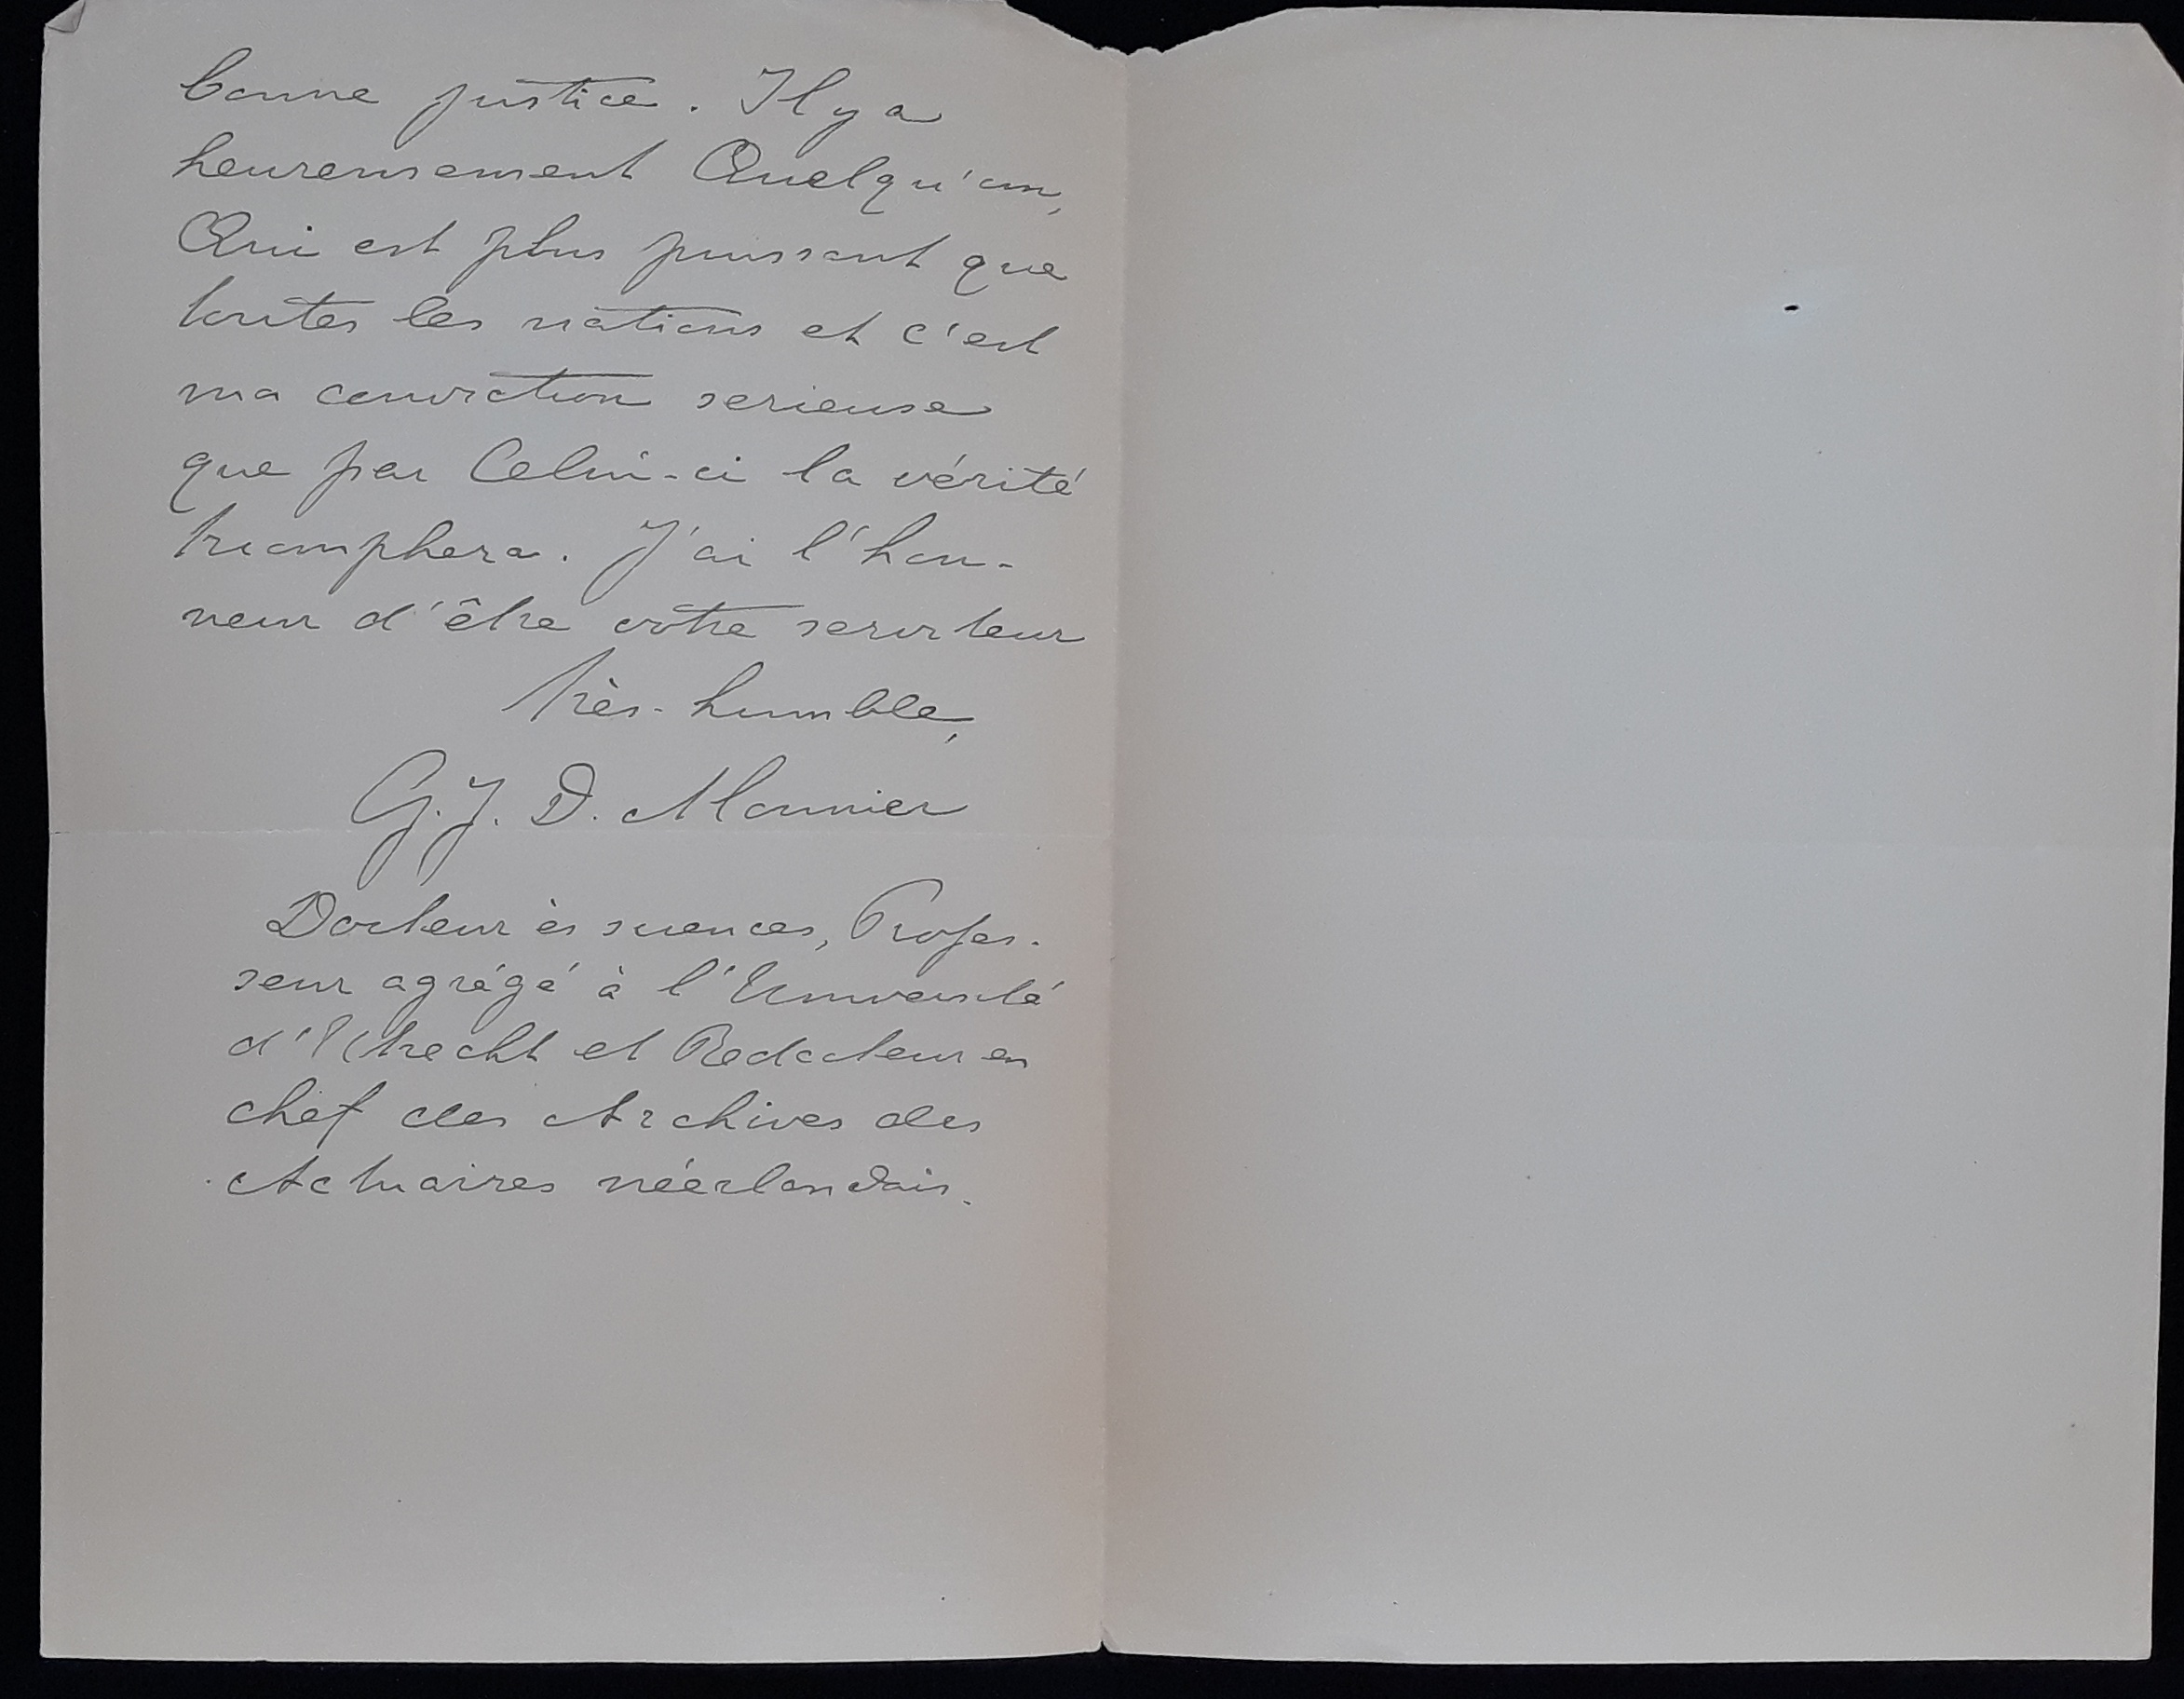 bonne justice. Il y a
heureusement Quelqu'un,
Qui est plus puissant que
toutes les nations et c'est
ma conviction serieuse
que par Celui-ci la vérité
triomphera. J'ai l'hon-
neur d'être votre serviteur
très-humble,
G. J. D. Mounier
Docteur ès sciences, Profes-
seur agrégé à l'Université
d'Utrecht et Redacteur en
chef des Archives des
Actuaires néerlandais.